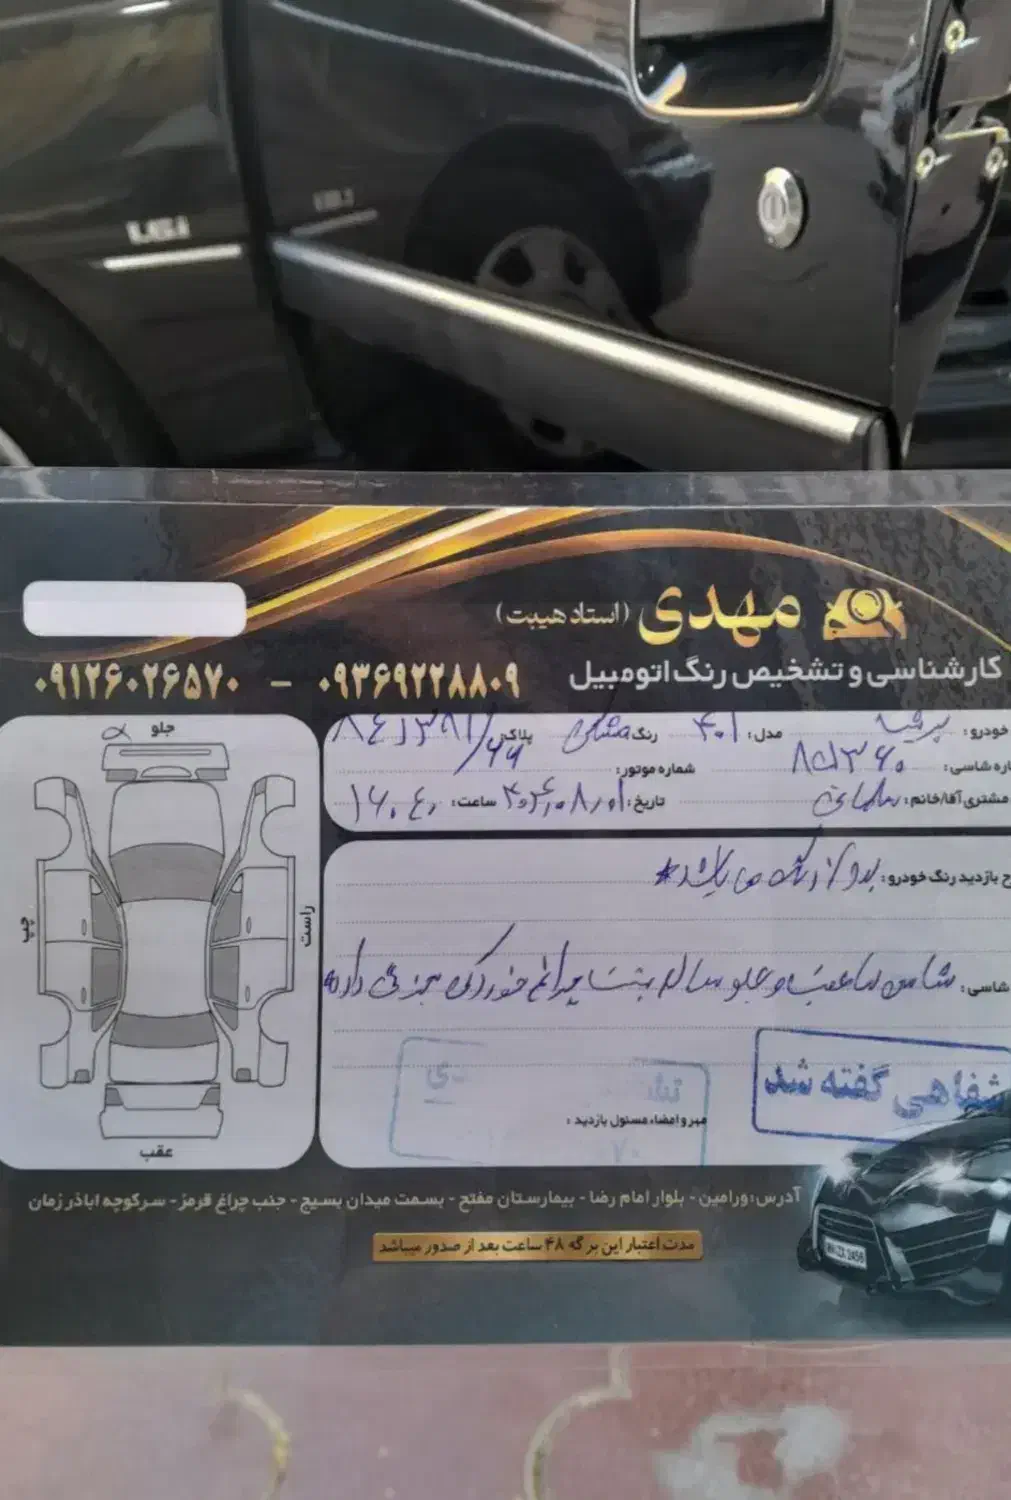 مهدی (استاد هیبت)
کارشناسی و تشخیص رنگ اتومبیل
۰۹۱۲۶۰۲۶۵۷۰ - ۰۹۳۶۹۲۲۸۸۰۹
خودرو: پرشیا مدل: ۴۰۱ رنگ: مشکی پلاک:
اره شاسی: شماره موتور:
مشتری آقا/خانم: سلمانی تاریخ: ساعت: ۱۶.۴۰
ح بازدید رنگ خودرو: بدون رنگ می باشد*
شاسی: شاسی ها عقب و جلو سالم پشت چراغ خوردگی جزئی دارد
شفاهی گفته شد
مهر و امضاء مسئول بازدید:
جلو
چپ
راست
عقب
آدرس: ورامین - بلوار امام رضا - بیمارستان مفتح - بسمت میدان بسیج - جنب چراغ قرمز - سرکوچه اباذر زمان
مدت اعتبار این برگه ۴۸ ساعت بعد از صدور میباشد